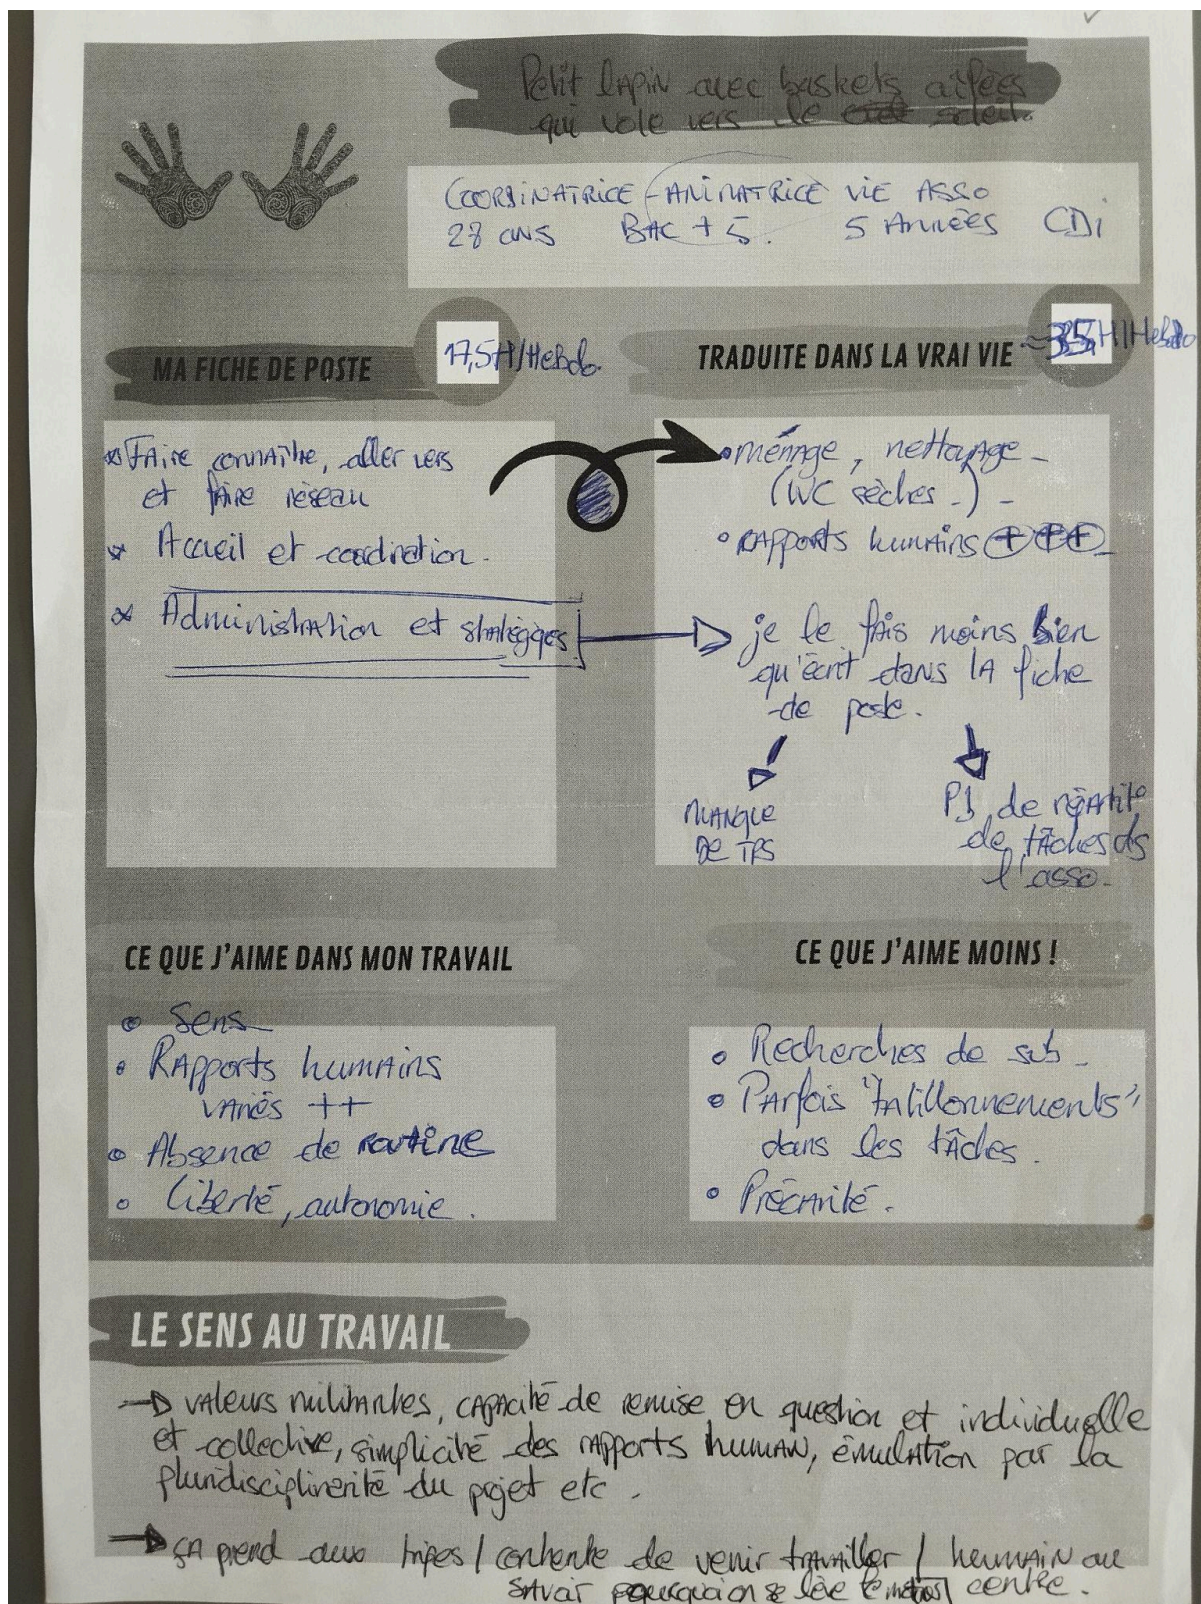 Petit lapin avec baskets ailées
qui vole vers le soleil.
COORDINATRICE - ANIMATRICE VIE ASSO
28 ans BAC + 5. 5 ANNÉES CDi
MA FICHE DE POSTE
17,5H/HEBDO.
TRADUITE DANS LA VRAI VIE
≈35H/HEBDO
FAire connaître, aller vers
et faire réseau
Accueil et coordination.
Administration et stratégiqes
ménage, nettoyage -
(WC sèches -) -
RAPPORTS humains +++
je le fais moins bien
qu'écrit dans LA fiche
de poste.
MANQUE
DE TPS
PB de répartit°
de tâches ds
l'asso.
CE QUE J'AIME DANS MON TRAVAIL
Sens
RAPPorts humains
variés ++
Absence de routine
Liberté, autonomie.
CE QUE J'AIME MOINS !
Recherches de sub -
PArfois "tatillonnements"
dans les tâches.
Précarité.
LE SENS AU TRAVAIL
→ VALEURS militantes, CAPACité de remise en question et individuelle
et collective, simplicité des rapports humAN, émulation par la
pluridisciplinerité du projet etc.
→ ça prend aux tripes / contente de venir travailler / humain au
savoir pourquoi on se lève le matin centre.